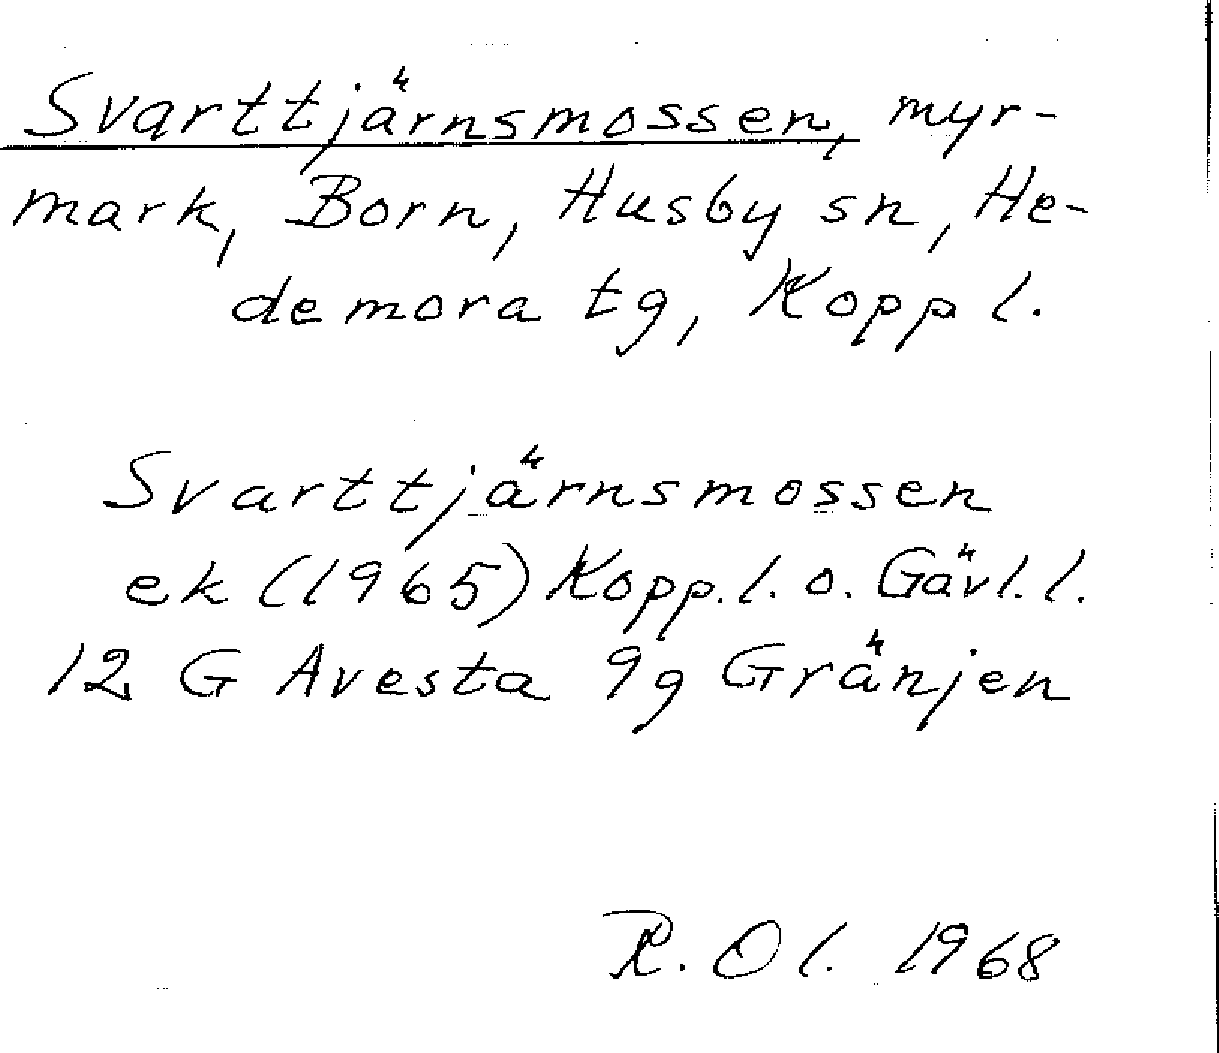 Svarttjärnsmossen, myr-
mark, Born, Husby sn, He-
demora tg, Kopp l.
Svarttjärnsmossen
ek (1965) Kopp.l. o. Gävl.l.
12 G Avesta 9g Gränjen
R. Ol. 1968